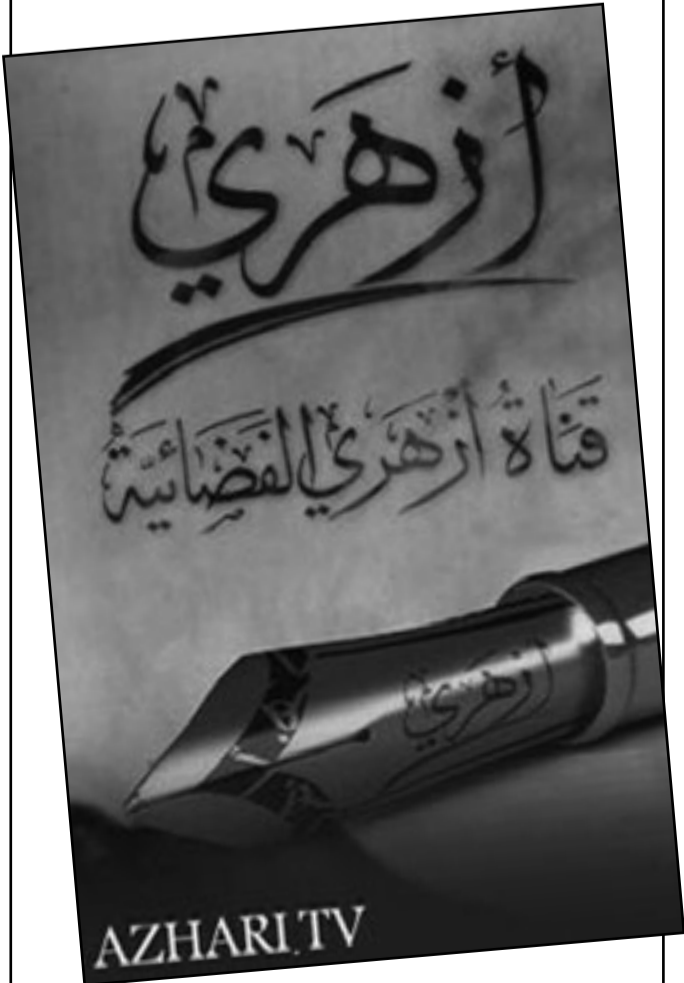 أزهري
قناة أزهري الفضائية
أزهري
AZHARI.TV